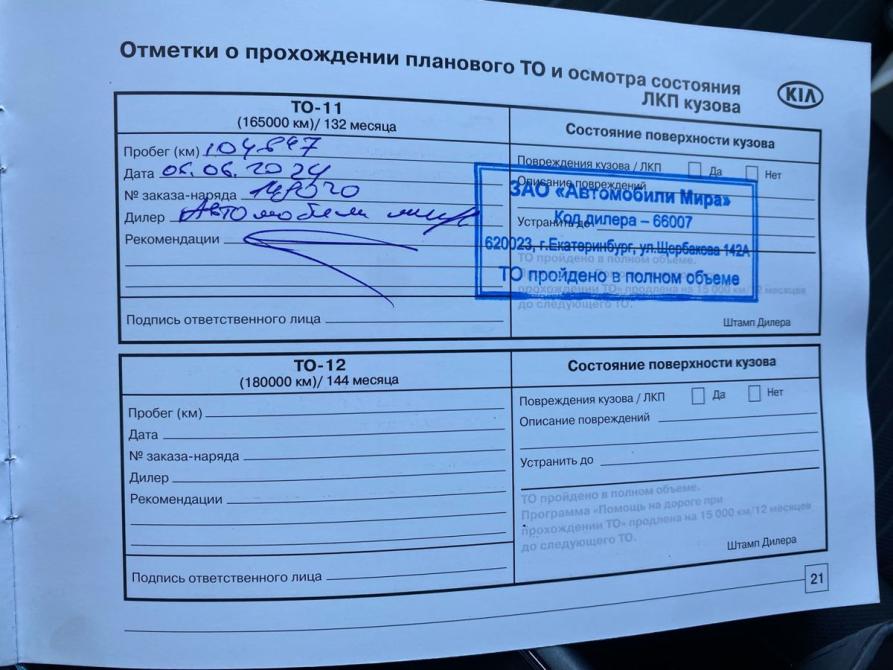 Отметки о прохождении планового ТО и осмотра состояния
ЛКП кузова
KIA
ТО-11
(165000 км)/ 132 месяца
Пробег (км) 104847
Дата 06.06.2024
№ заказа-наряда
Дилер Автомобили мира
Рекомендации
Подпись ответственного лица
Состояние поверхности кузова
Повреждения кузова / ЛКП Да Нет
Описание повреждений
Устранить до
ЗАО «Автомобили Мира»
Код дилера – 66007
620023, г.Екатеринбург, ул.Щербакова 142А
ТО пройдено в полном объеме
ТО пройдено в полном объеме.
прохождении ТО» продлена на 15 000 км/12 месяцев
до следующего ТО.
Штамп Дилера
ТО-12
(180000 км)/ 144 месяца
Пробег (км)
Дата
№ заказа-наряда
Дилер
Рекомендации
Подпись ответственного лица
Состояние поверхности кузова
Повреждения кузова / ЛКП Да Нет
Описание повреждений
Устранить до
ТО пройдено в полном объеме.
Программа «Помощь на дороге при
прохождении ТО» продлена на 15 000 км/12 месяцев
до следующего ТО.
Штамп Дилера
21